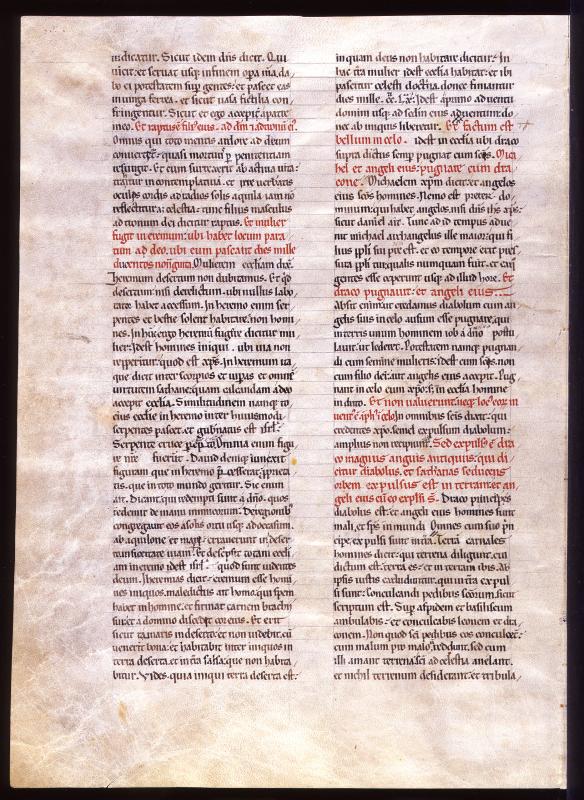 dicatur. Sicut idem dñs dicit. Qui
uicit et seruat usq; in finem opera mea, da
bo ei potestatem sup gentes. et pascet eas
in uirga ferrea. et sicut uasa fictilia con
fringentur. Sicut et ego accepi a patre
meo. Et raptus est filius eius. ad dm
Omnis qui toto mentis ardore ad deum
conuertit. quasi mortuus p penitentiam
Et cum surrexerit ab actiua uita.
transit in contemplatiua. et
oculos cordis ad radios solis aquila iam
ad celestia. tunc filius masculus
ad tronum dei dicitur raptus. Et mulier
fugit in eremum. ubi habet locum para
tum ad deo. ubi eum pascant dies mille
ducentos Mulierem ecclam
heremum desertum non dubitamus. Et
desertum nisi derelictum. ubi nullus habi
tator habet accessum. In heremo enim ser
pentes et bestie solent habitare. non homi
nes. In heremu fugere dicitur mu
lier. idest homines iniqui. ubi uia non
repperitur. quod est xps. In heremum ita
que dicit inter scorpios et uiperas et omnem
uirtutem sathane. quam calcandam a deo
accepit ecclia. Similitudinem namq; to
cius ecclie in heremo inter huiusmodi
serpentes pascet et gubernatus est isrl.
Serpente omnia enim figu
re fuerit. Dauid denique iunexit
figuram que in heremo
tis. que in toto mundo geritur. Sic enim
ait. Dicant qui redempti sunt a dño. quos
redemit de manu inimicorum. De regionib;
congregauit eos a solis ortu usq; ad occasum.
ab aquilone et mari. errauerunt in deser
to in siccitate. Et de se ipso totam eccli
am in eremo idest isrl. quod sunt uidentes
deum. Iheremias dicit. eremum esse homi
nes iniquos. maledictus ait homo. qui spem
habet in homine. et firmat carnem brachii
sui. et a domino discedit cor eius. Et erit
sicut tamaris in deserto. et non uidebit. cu
uenerit bona. et habitabit inter iniquos in
terra deserta. et in tra salsa. que non habita
bitur. Vides. quia iniqui terra deserta est.
in quam deus non habitare dicitur. In
hac tra mulier idest ecclia habitat. et ibi
pascetur celesti doctrina. donec finiantur
dies mille. cc. lx. idest a primo aduentu
domini usq; ad scdm eius aduentum. do
nec ab iniquis liberetur. Et factum est
bellum in celo. idest in ecclia ubi draco
supra dictus semp pugnat cum scis. Micha
hel et angeli eius. pugnare cum dra
cone. Michaelem xpm dicit. et angelos
eius scos homines. Nemo est preter do
minum. qui habet angelos. nisi dns ihs xps.
sicut daniel ait. Tunc ad id tempus adue
nit michael archangelus ille maior. qui fi
liis ppli sui pre est. et eo tempore erit pres
sura ppli qualis numquam fuit. ex quo
gentes esse ceperunt usq; ad illud hore. Et
draco pugnauit. et angeli eius.
Absit enim. ut credamus diabolum cum an
gelis suis in celo ausum esse pugnare. qui
in terris unum hominem iob a dño postu
lauit. ut lederet. Potestatem namq; pugnan
di cum semine mulieris. idest cum scis. non
cum filio dei. aut angelis eius accepit. Pug
nant in celo cum xpo. in ecclia homine
in dno. Et non ualuerunt. neq; locus eorum in
uentus est amplius in celo. In omnibus scis dicit. qui
credentes xpo semel expulsum diabolum.
amplius non recipiunt. Sed expulsus est dra
co magnus anguis antiquus. qui di
citur diabolus. et sathanas. seducens
orbem. expulsus est in terram. et an
geli eius cu eo expulsi s. Draco princeps
diabolus est. et angeli eius homines sunt
mali. et sps in mundi. Omnes cum suo prin
cipe expulsi sunt in tra. Terra carnales
homines dicit. qui terrena diligunt. cui
dictum est. terra es. et in terram ibis. Ab
ipsis iustis excluduntur. qui in tra expul
si sunt. conculcandi pedibus scorum. sicut
scriptum est. Sup aspidem et basiliscum
ambulabis. et conculcabis leonem et dra
conem. Non quod sci pedibus eos conculcent.
cum malum pro malo reddunt. sed cum
illi amant terrena. sci ad celestia anelant.
et nichil terrenum desiderant. et tribula